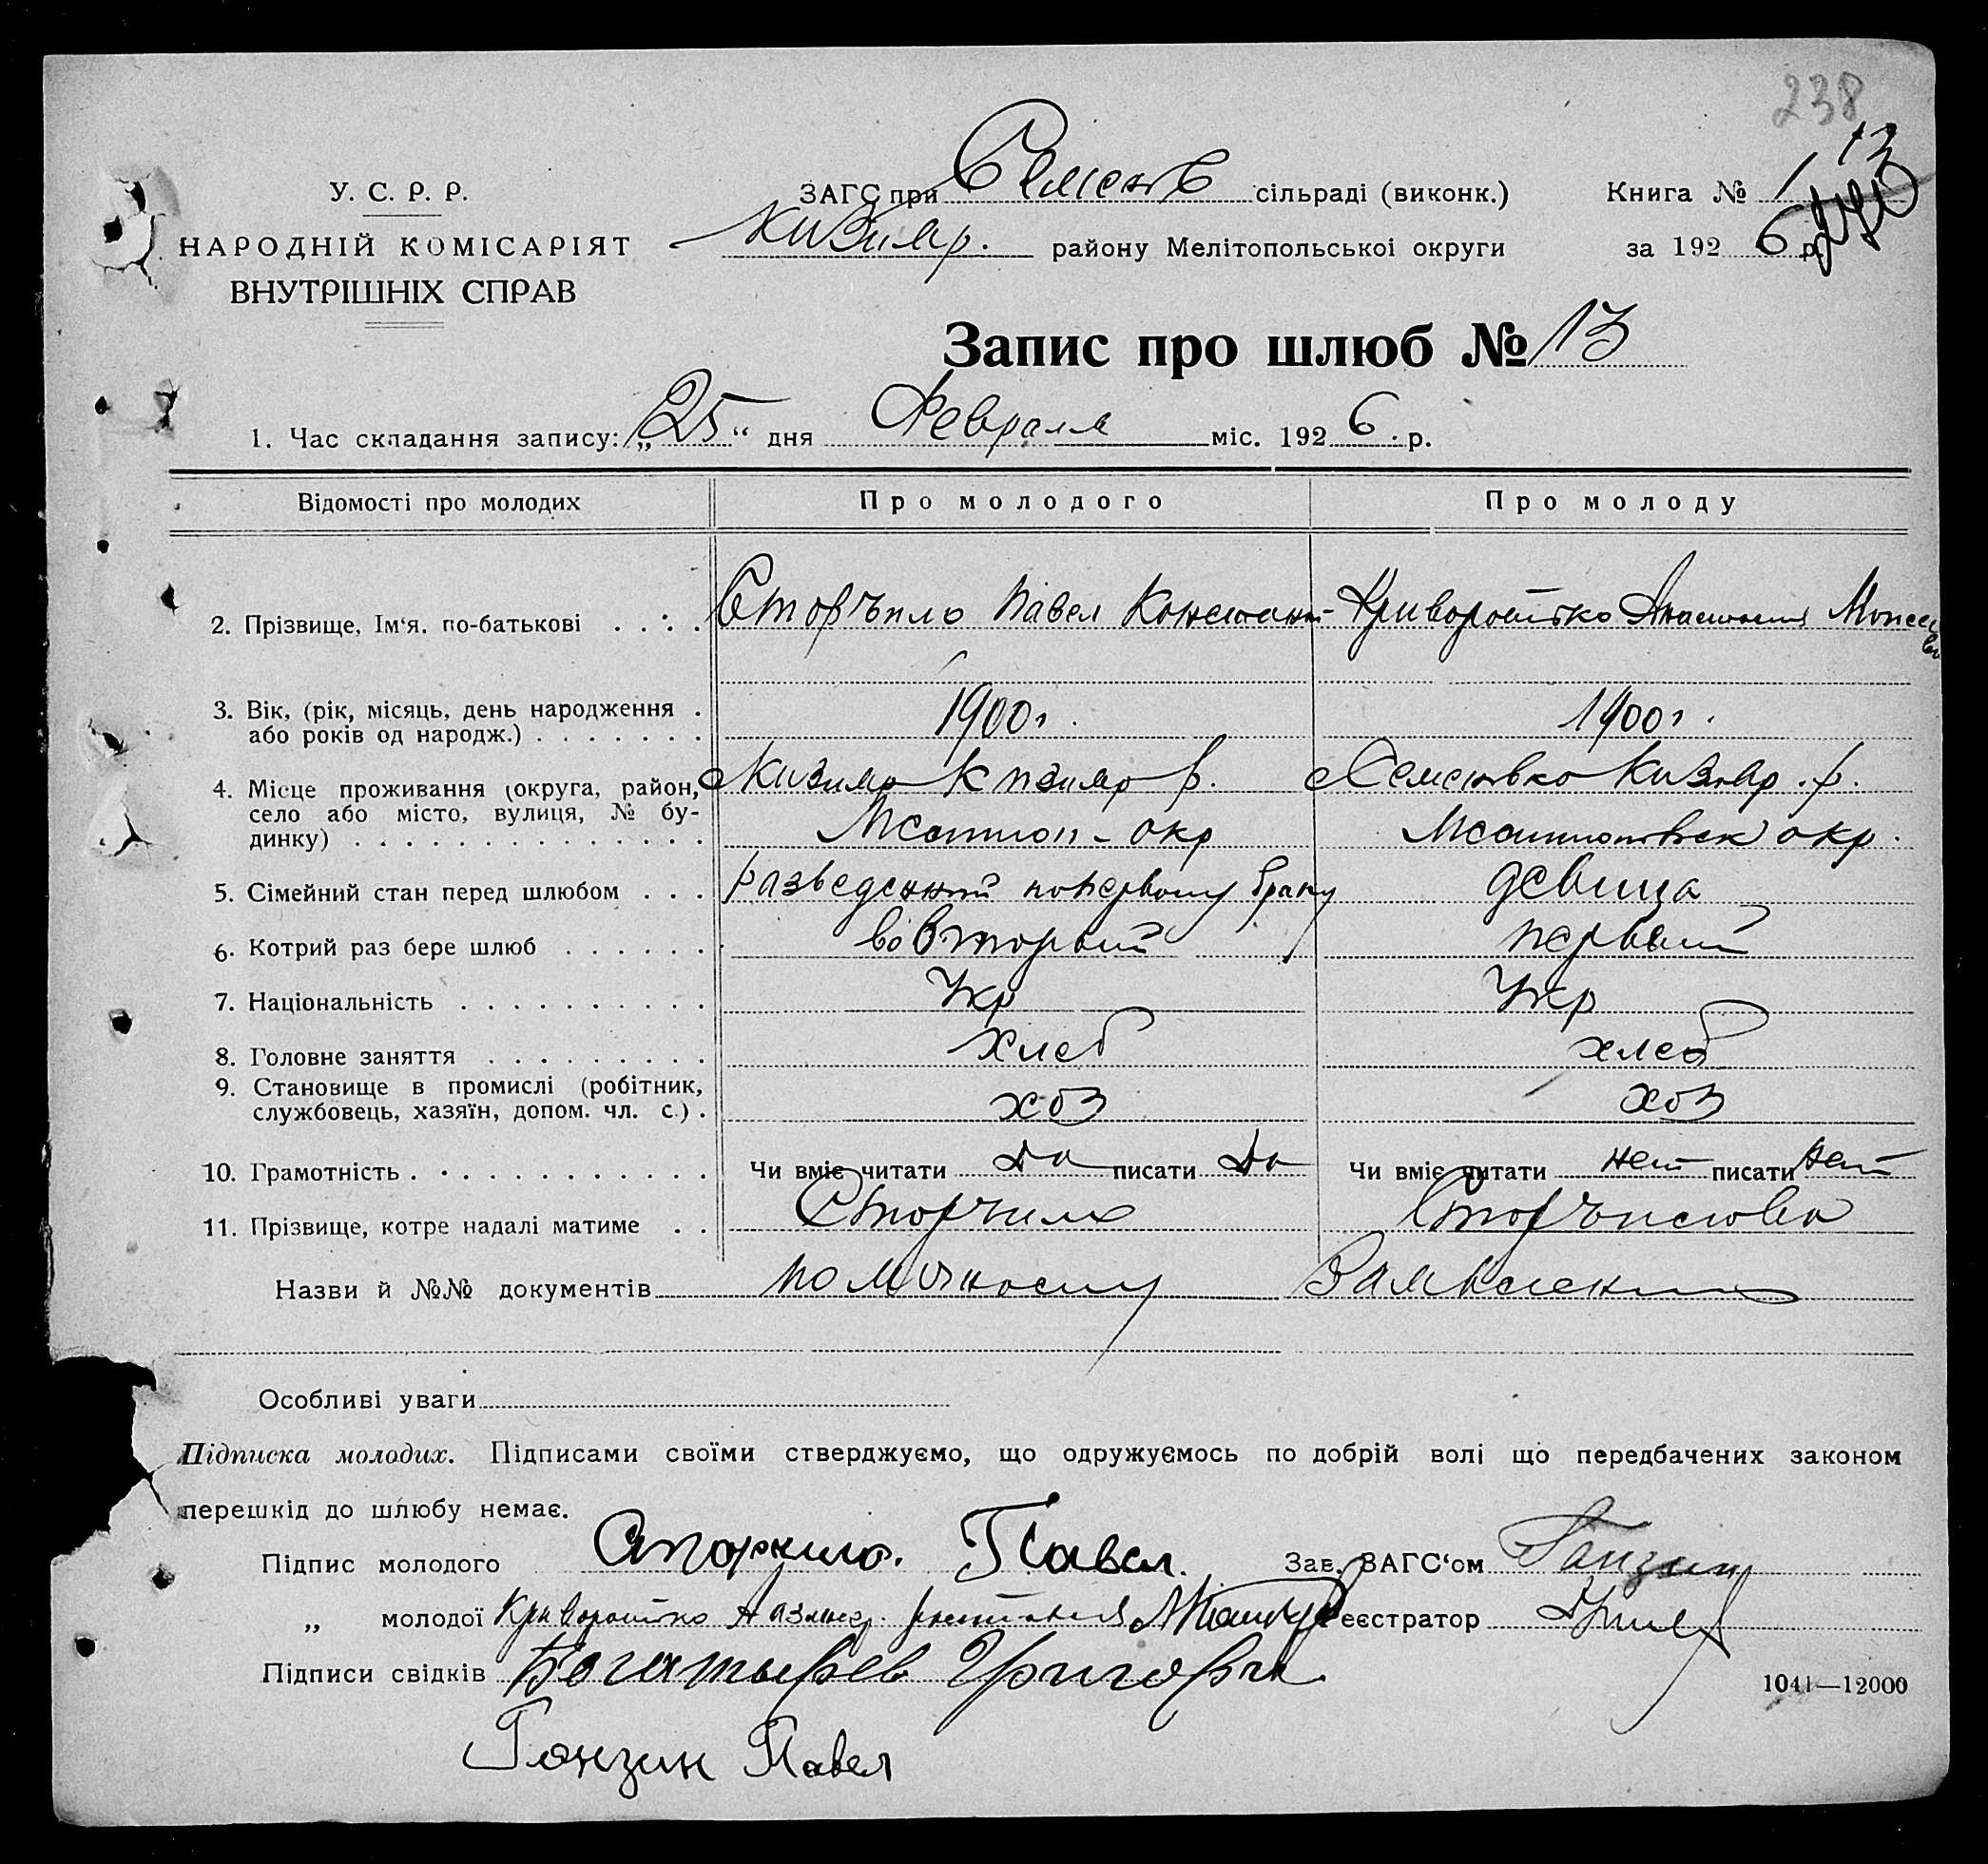 238
13
У. С. Р. Р.
ЗАГС при Семенов сільраді (виконк.) Книга № 1
НАРОДНІЙ КОМІСАРІЯТ
Кизияр. району Мелітопольської округи за 1926 р.
ВНУТРІШНІХ СПРАВ
Запис про шлюб № 13
1. Час складання запису: „25“ дня Февраля міс. 1926.р.
Відомості про молодих Про молодого Про молоду
2. Прізвище, Ім‘я, по-батькові . . . . Сторчило Павел Констант Криворотько Анастасия Моисеев
3. Вік, (рік, місяць, день народження . 1900г. 1900г.
або років од народж.) . . . . . . .
4. Місце проживання (округа, район, Кизияр Кизияр р. Семеновка Кизияр. р.
село або місто, вулиця, № бу-
динку) . . . . . . . . . . . . . . Мелитоп-окр Мелитопольск окр.
5. Сімейний стан перед шлюбом . . . разведенный по первому браку девица
6. Котрий раз бере шлюб . . . . . . во вторый первый
7. Національність . . . . . . . . . . Укр Укр
8. Головне заняття . . . . . . . . . хлеб хлеб
9. Становище в промислі (робітник,
службовець, хазяїн, допом. чл. с.) . хоз хоз
10. Грамотність . . . . . . . . . . . . Чи вміє читати да писати да Чи вміє читати нет писати нет
11. Прізвище, котре надалі матиме . . Сторчило Сторчилова
Назви й №№ документів по личному заявлению
Особливі уваги
Підписка молодих. Підписами своїми стверджуємо, що одружуємось по добрій волі що передбачених законом
перешкід до шлюбу немає.
Підпис молодого Сторчило. Павел. Зав. ЗАГС‘ом Ганзин
„ молодої Криворотько Реєстратор
Підписи свідків Богатырев Григорий
1041—12000
Ганзин Павел